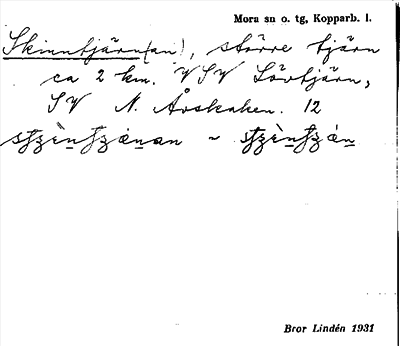 Mora sn o. tg, Kopparb. l.
Skinntjärn(an), större tjärn
ca 2 km. VSV Lövtjärn,
SV N. Åvskaken. 12
Bror Lindén 1931